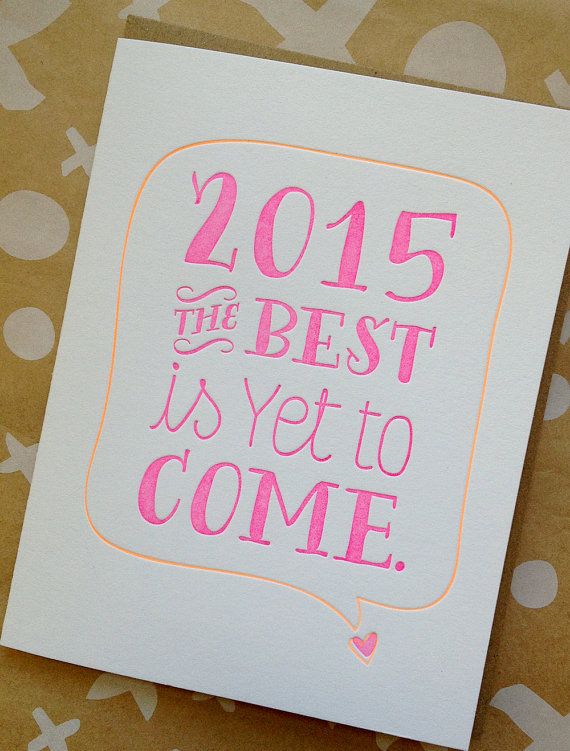 2015
THE BEST
is Yet to
COME.